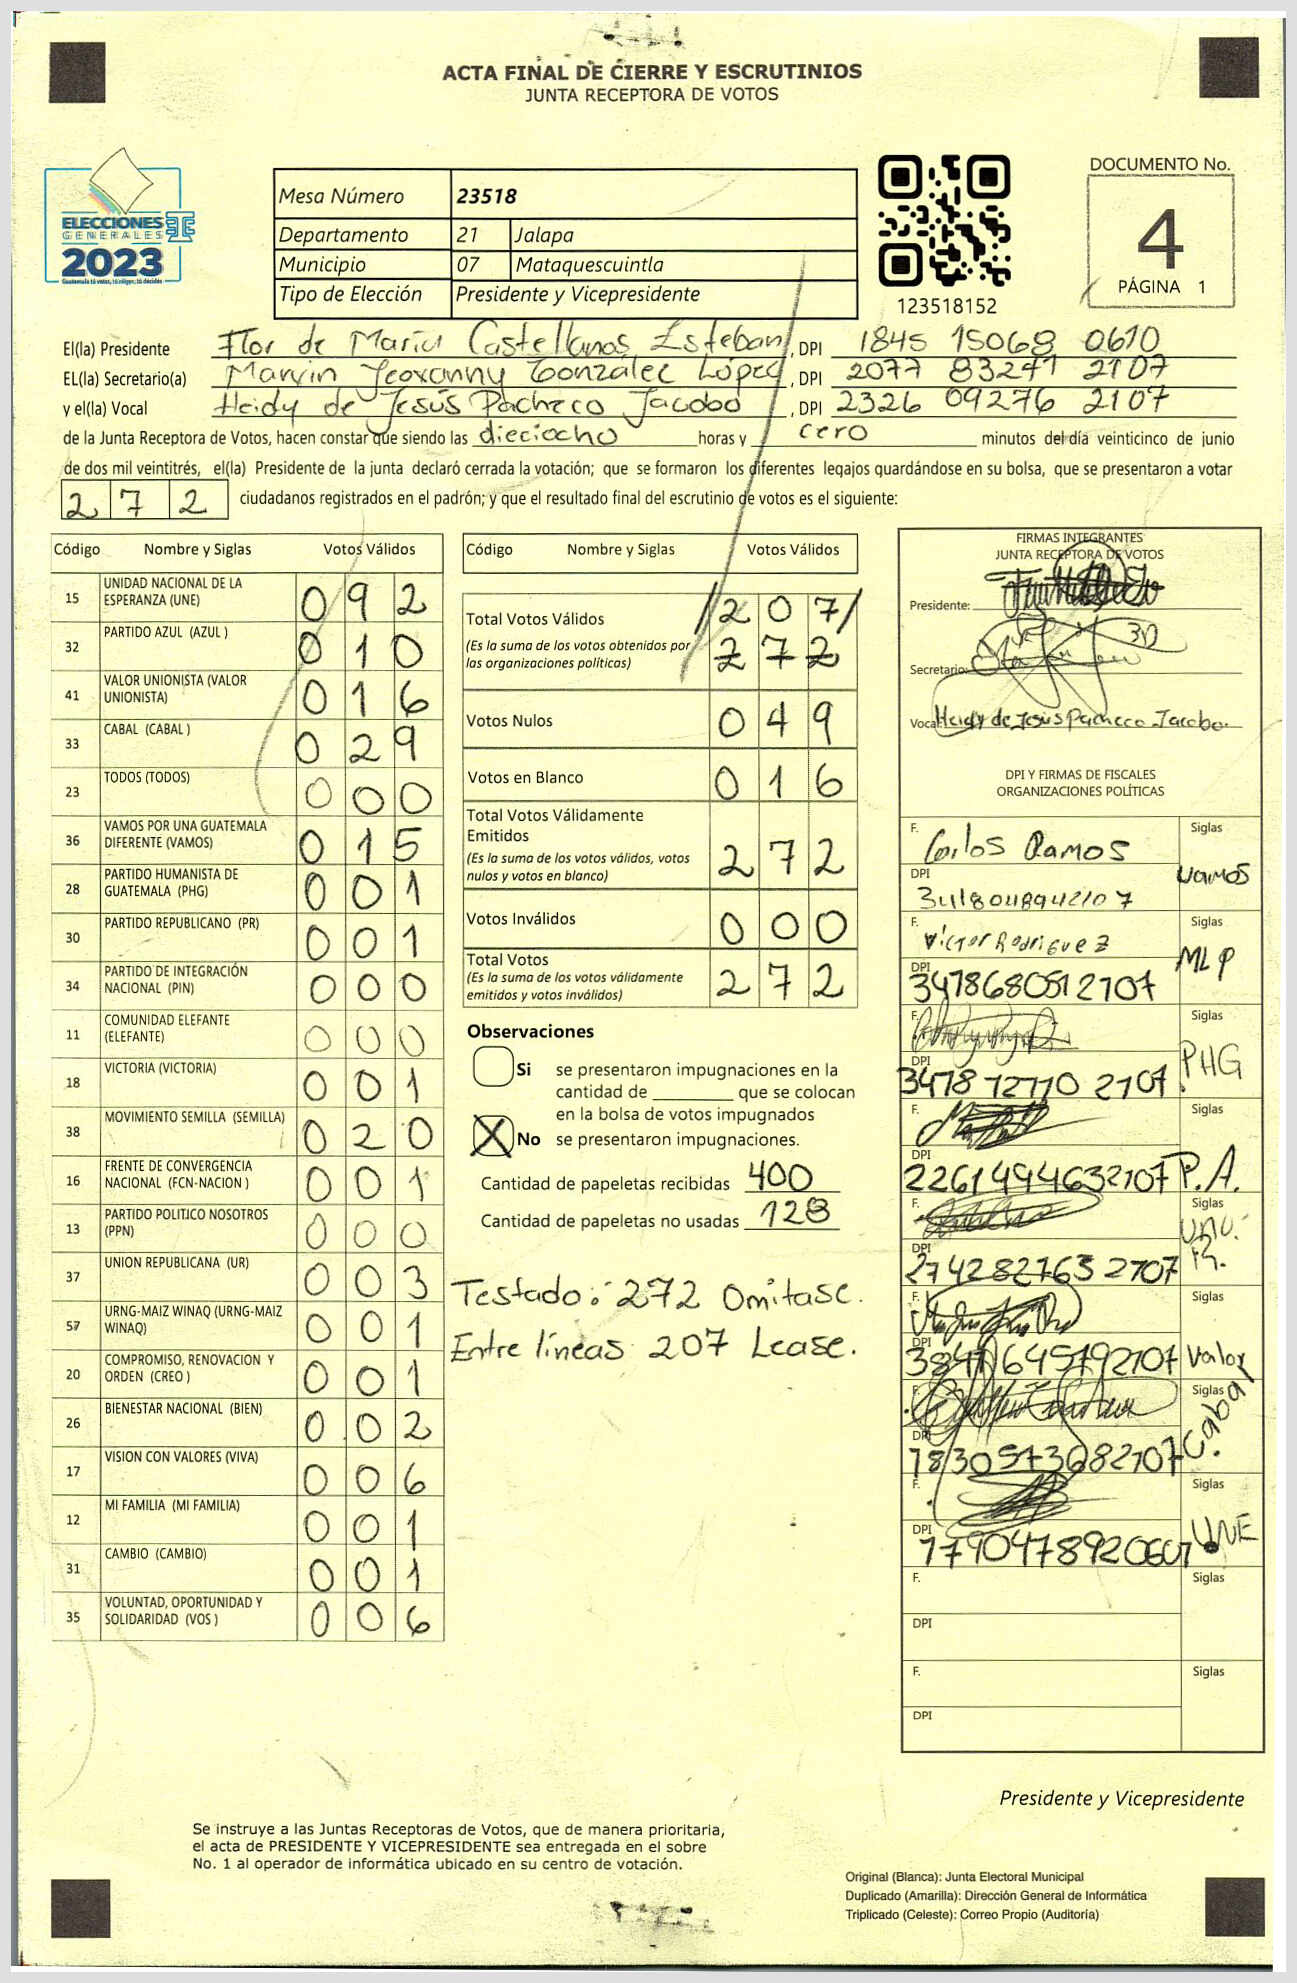 ACTA FINAL DE CIERRE Y ESCRUTINIOS
JUNTA RECEPTORA DE VOTOS
ELECCIONES
GENERALES
TSE
2023
Guatemala tú votas, tú eliges, tú decides
Mesa Número 23518
Departamento 21 Jalapa
Municipio 07 Mataquescuintla
Tipo de Elección Presidente y Vicepresidente
123518152
DOCUMENTO No.
4
PÁGINA 1
El(la) Presidente Flor de María Castellanos Esteban, DPI 1845 15068 0610
EL(la) Secretario(a) Marvin Jeovanny Gonzalec López, DPI 2077 83271 2107
y el(la) Vocal Heidy de Jesús Pacheco Jacobo, DPI 2326 09276 2107
de la Junta Receptora de Votos, hacen constar que siendo las dieciocho horas y cero minutos del día veinticinco de junio
de dos mil veintitrés, el(la) Presidente de la junta declaró cerrada la votación; que se formaron los diferentes legajos guardándose en su bolsa, que se presentaron a votar
2 7 2 ciudadanos registrados en el padrón; y que el resultado final del escrutinio de votos es el siguiente:
Código Nombre y Siglas Votos Válidos
15 UNIDAD NACIONAL DE LA ESPERANZA (UNE) 0 9 2
32 PARTIDO AZUL (AZUL ) 0 1 0
41 VALOR UNIONISTA (VALOR UNIONISTA) 0 1 6
33 CABAL (CABAL ) 0 2 9
23 TODOS (TODOS) 0 0 0
36 VAMOS POR UNA GUATEMALA DIFERENTE (VAMOS) 0 1 5
28 PARTIDO HUMANISTA DE GUATEMALA (PHG) 0 0 1
30 PARTIDO REPUBLICANO (PR) 0 0 1
34 PARTIDO DE INTEGRACIÓN NACIONAL (PIN) 0 0 0
11 COMUNIDAD ELEFANTE (ELEFANTE) 0 0 0
18 VICTORIA (VICTORIA) 0 0 1
38 MOVIMIENTO SEMILLA (SEMILLA) 0 2 0
16 FRENTE DE CONVERGENCIA NACIONAL (FCN-NACION ) 0 0 1
13 PARTIDO POLITICO NOSOTROS (PPN) 0 0 0
37 UNION REPUBLICANA (UR) 0 0 3
57 URNG-MAIZ WINAQ (URNG-MAIZ WINAQ) 0 0 1
20 COMPROMISO, RENOVACION Y ORDEN (CREO ) 0 0 1
26 BIENESTAR NACIONAL (BIEN) 0 0 2
17 VISION CON VALORES (VIVA) 0 0 6
12 MI FAMILIA (MI FAMILIA) 0 0 1
31 CAMBIO (CAMBIO) 0 0 1
35 VOLUNTAD, OPORTUNIDAD Y SOLIDARIDAD (VOS ) 0 0 6
Código Nombre y Siglas Votos Válidos
Total Votos Válidos /2 0 7/
(Es la suma de los votos obtenidos por las organizaciones políticas) 2 7 2
Votos Nulos 0 4 9
Votos en Blanco 0 1 6
Total Votos Válidamente Emitidos
(Es la suma de los votos válidos, votos nulos y votos en blanco) 2 7 2
Votos Inválidos 0 0 0
Total Votos
(Es la suma de los votos válidamente emitidos y votos inválidos) 2 7 2
Observaciones
Si se presentaron impugnaciones en la
cantidad de ________ que se colocan
en la bolsa de votos impugnados
X No se presentaron impugnaciones.
Cantidad de papeletas recibidas 400
Cantidad de papeletas no usadas 128
Testado: 272 Omitase.
Entre líneas 207 Lease.
FIRMAS INTEGRANTES
JUNTA RECEPTORA DE VOTOS
Presidente:
Secretario:
Vocal Heidy de Jesús Pacheco Jacobo
DPI Y FIRMAS DE FISCALES
ORGANIZACIONES POLÍTICAS
F. Carlos Ramos Siglas
DPI VAMOS
F. Víctor Rodríguez Siglas
DPI 3478680512107 MLP
F. Siglas
DPI 3478 12710 2107 PHG
F. Siglas
DPI 2261494632107 P.A.
F. Siglas
DPI 2742827632107
F. Siglas
DPI Valor
F. Siglas
DPI Cabal
F. Siglas
DPI UNE
F. Siglas
DPI
F. Siglas
DPI
Presidente y Vicepresidente
Se instruye a las Juntas Receptoras de Votos, que de manera prioritaria,
el acta de PRESIDENTE Y VICEPRESIDENTE sea entregada en el sobre
No. 1 al operador de informática ubicado en su centro de votación.
Original (Blanca): Junta Electoral Municipal
Duplicado (Amarilla): Dirección General de Informática
Triplicado (Celeste): Correo Propio (Auditoría)